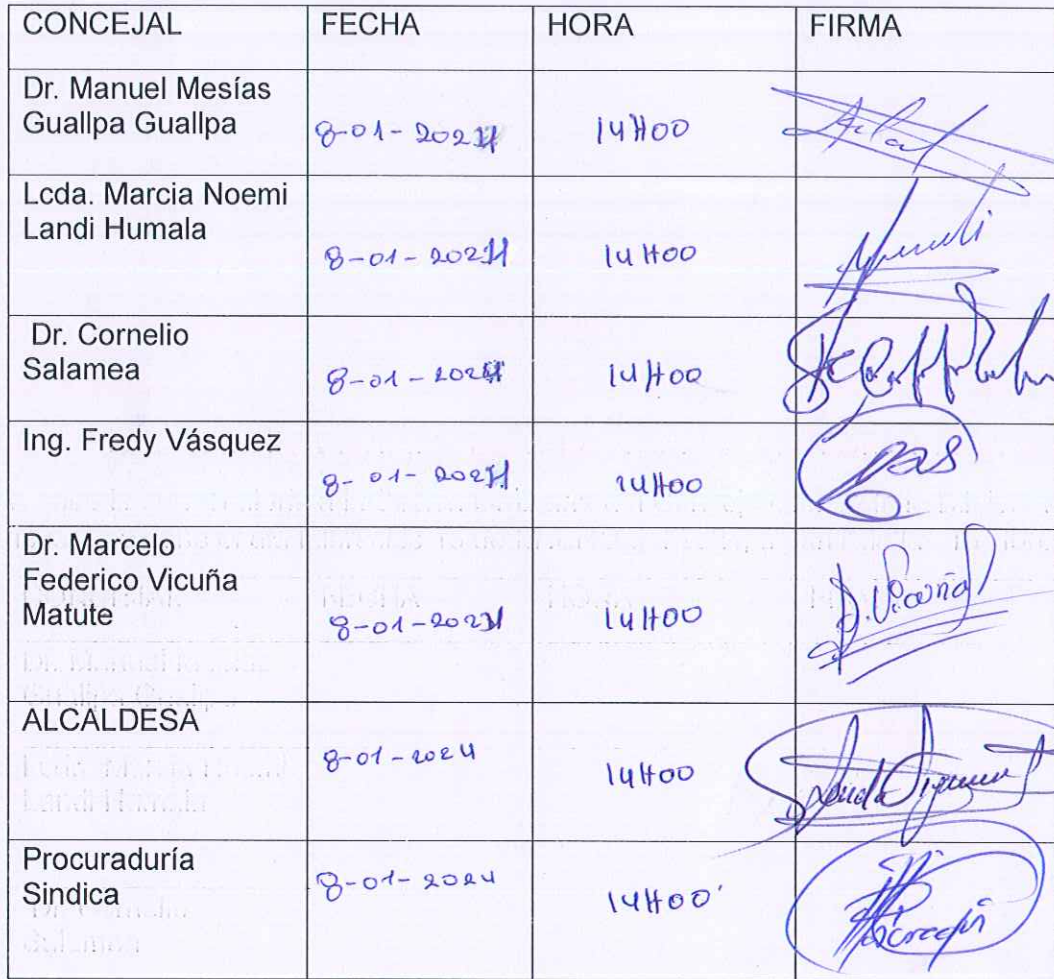 CONCEJAL FECHA HORA FIRMA
Dr. Manuel Mesías
Guallpa Guallpa 8-01-2024 14H00
Lcda. Marcia Noemi
Landi Humala 8-01-2024 14H00
Dr. Cornelio
Salamea 8-01-2024 14H00
Ing. Fredy Vásquez
8-01-2024 14H00
Dr. Marcelo
Federico Vicuña
Matute 8-01-2024 14H00
ALCALDESA
8-01-2024 14H00
Procuraduría
Sindica 8-01-2024 14H00